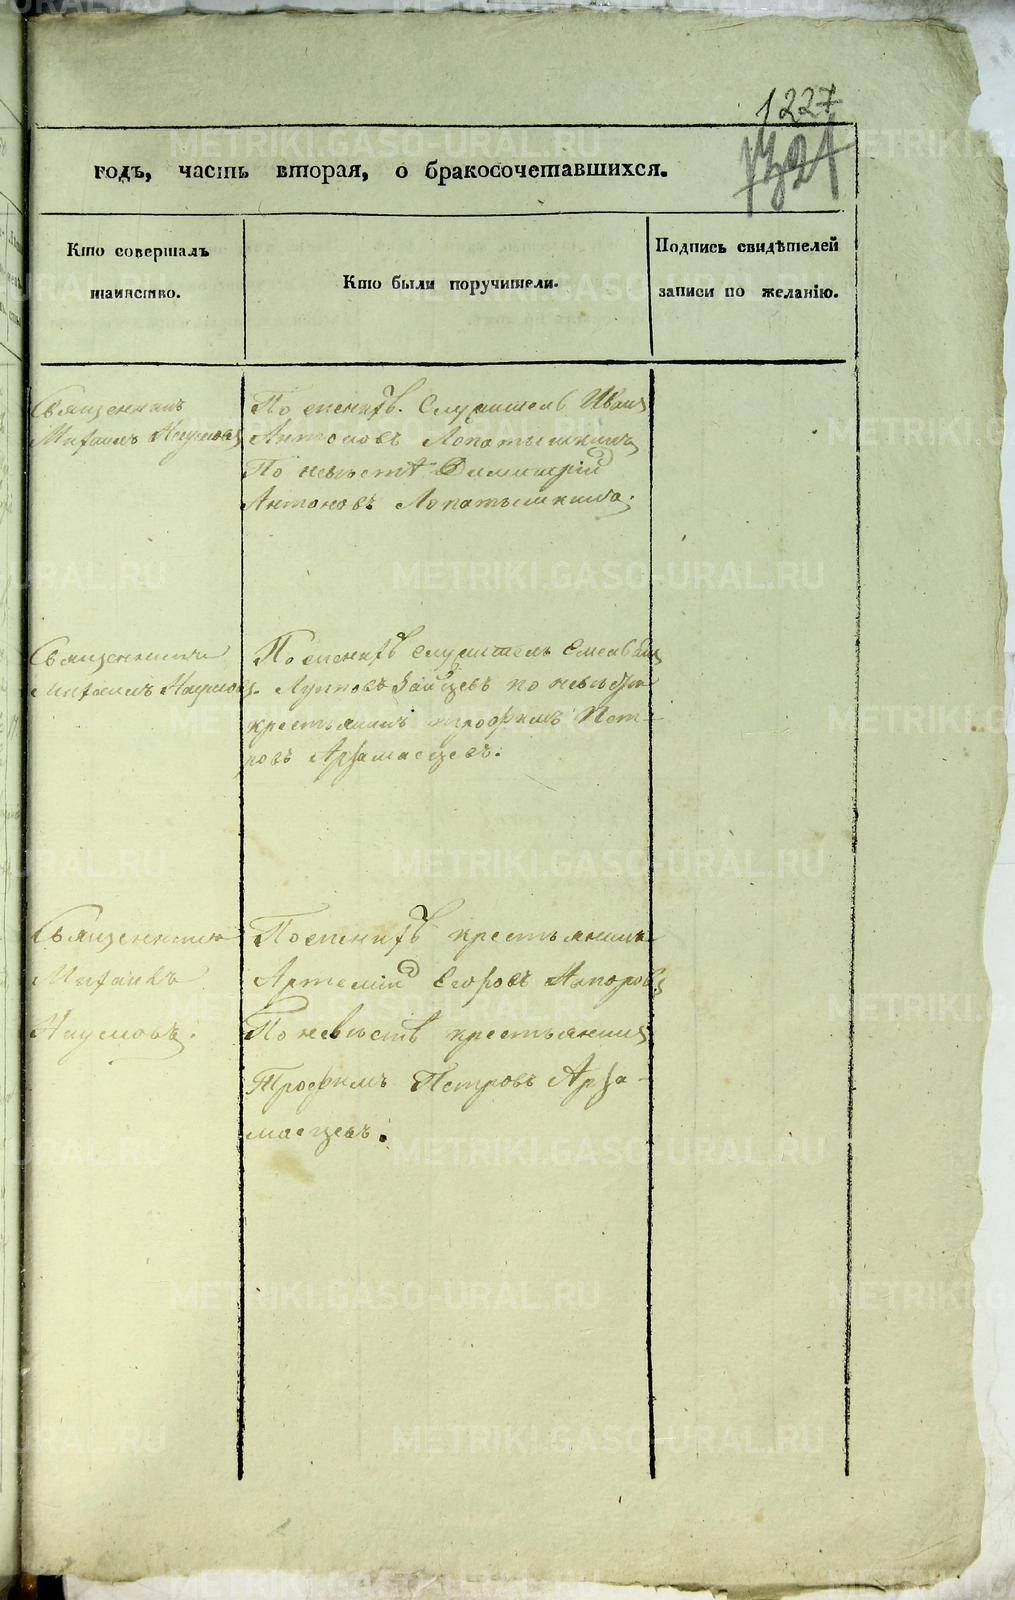 1227
1321
годъ, часть вторая, о бракосочетавшихся.
Кто совершалъ
таинство.
Кто были поручители.
Подпись свидѣтелей
записи по желанію.
Священникъ
Михаилъ Наумовъ
По женихѣ. Служитель Иванъ
Антоновъ Лопатышкинъ
По невѣстѣ Димитрій
Антоновъ Лопатышкинъ.
Священникъ
Михаилъ Наумовъ.
По женихѣ служитель
Лупповъ Зайцевъ по невѣстѣ
крестьянинъ Трофимъ Пет-
ровъ Арзамасцевъ.
Священникъ
Михаилъ
Наумовъ.
По женихѣ крестьянинъ
Артемій Егоровъ
По невѣстѣ крестьянинъ
Трофимъ Петровъ Арза-
масцевъ.
METRIKI.GASO-URAL.RU